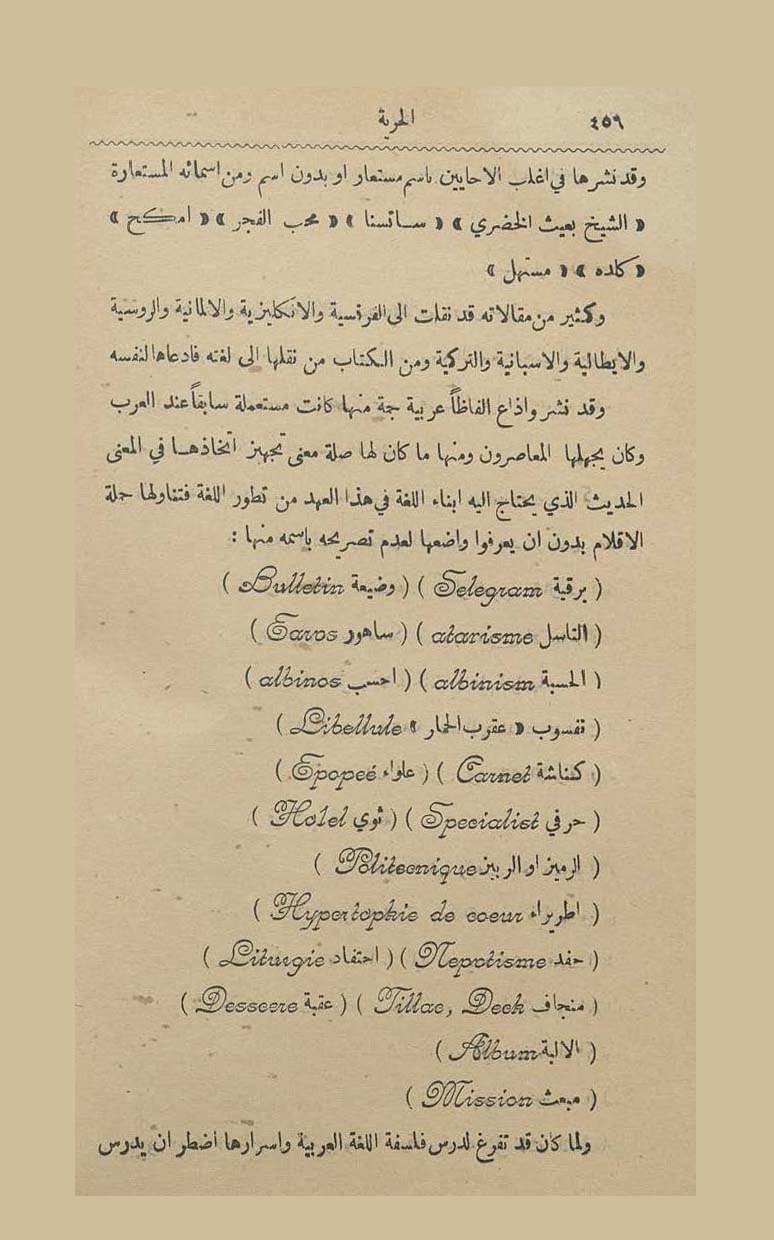 ٤٥٩ الحرية
وقد نشرها في اغلب الاحايين باسم مستعار او بدون اسم ومن اسمائه المستعارة
« الشيخ بعيث الخضري » « ساتسنا » « محب الفجر » « امكح »
« كلده » « مستهل »
وكثير من مقالاته قد نقلت الى الفرنسية والانكليزية والالمانية والروسية
والايطالية والاسبانية والتركية ومن الكتاب من نقلها الى لغته فادعاها لنفسه
وقد نشر واذاع الفاظاً عربية جمة منها كانت مستعملة سابقاً عند العرب
وكان يجهلها المعاصرون ومنها ما كان لها صلة معنى تجهيز اتخاذها في المعنى
الحديث الذي يحتاج اليه ابناء اللغة في هذا العهد من تطور اللغة فتناولها حملة
الاقلام بدون ان يعرفوا واضعها لعدم تصريحه باسمه منها :
( برقية Telegram ) ( وضيعة Bulletin )
( التاسل atavisme ) ( ساهور Taros )
( الحسبة albinism ) ( احسب albinos )
( تفسوب « عقرب الحمار » Libellule )
( كناشة Carnet ) ( علواء Epopeé )
( حرفي Specialist ) ( ثوي Hotel )
( الرميز او الربيز Politecnique )
( اطريراء Hypertophie de coeur )
( حفد Nepotisme ) ( احتفاد Liturgie )
( منجاف Tillac, Deck ) ( عقبة Dessere )
( الالبة Album )
( مبعث Mission )
ولما كان قد تفرغ لدرس فلسفة اللغة العربية واسرارها اضطر ان يدرس